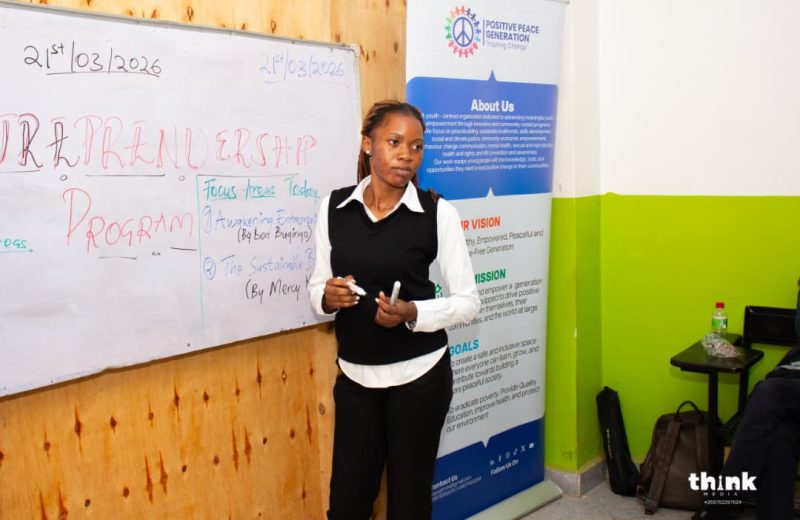 21st/03/2026
21st/03/2026
URE PRENUERSHIP
PROGRAM
Focus Areas Today
① Awakening Entrepren
(By Don
② The Sustainable B
(By Mercy K
POSITIVE PEACE
GENERATION
"Inspiring Change"
About Us
A youth - centred organization dedicated to advancing meaningful youth
empowerment through innovative and community-rooted programs.
We focus on peacebuilding, sustainable livelihoods, skills development,
social and climate policy, community economic empowerment,
behaviour change communication, mental health, sexual and reproductive
health and rights, and HIV prevention and awareness.
Our work equips young people with the knowledge, tools, and
opportunities they need to positive change in their communities.
UR VISION
thy, Empowered, Peaceful and
e-Free Generation
MISSION
and empower a generation
quipped to drive positive
in themselves, their
communities, and the world at large.
GOALS
To create a safe and inclusive space
where everyone can learn, grow, and
contribute towards building a
more peaceful society.
To eradicate poverty, Provide Quality
Education, improve health, and protect
our environment
Contact Us
Follow Us On
think
MEDIA
+256782297624